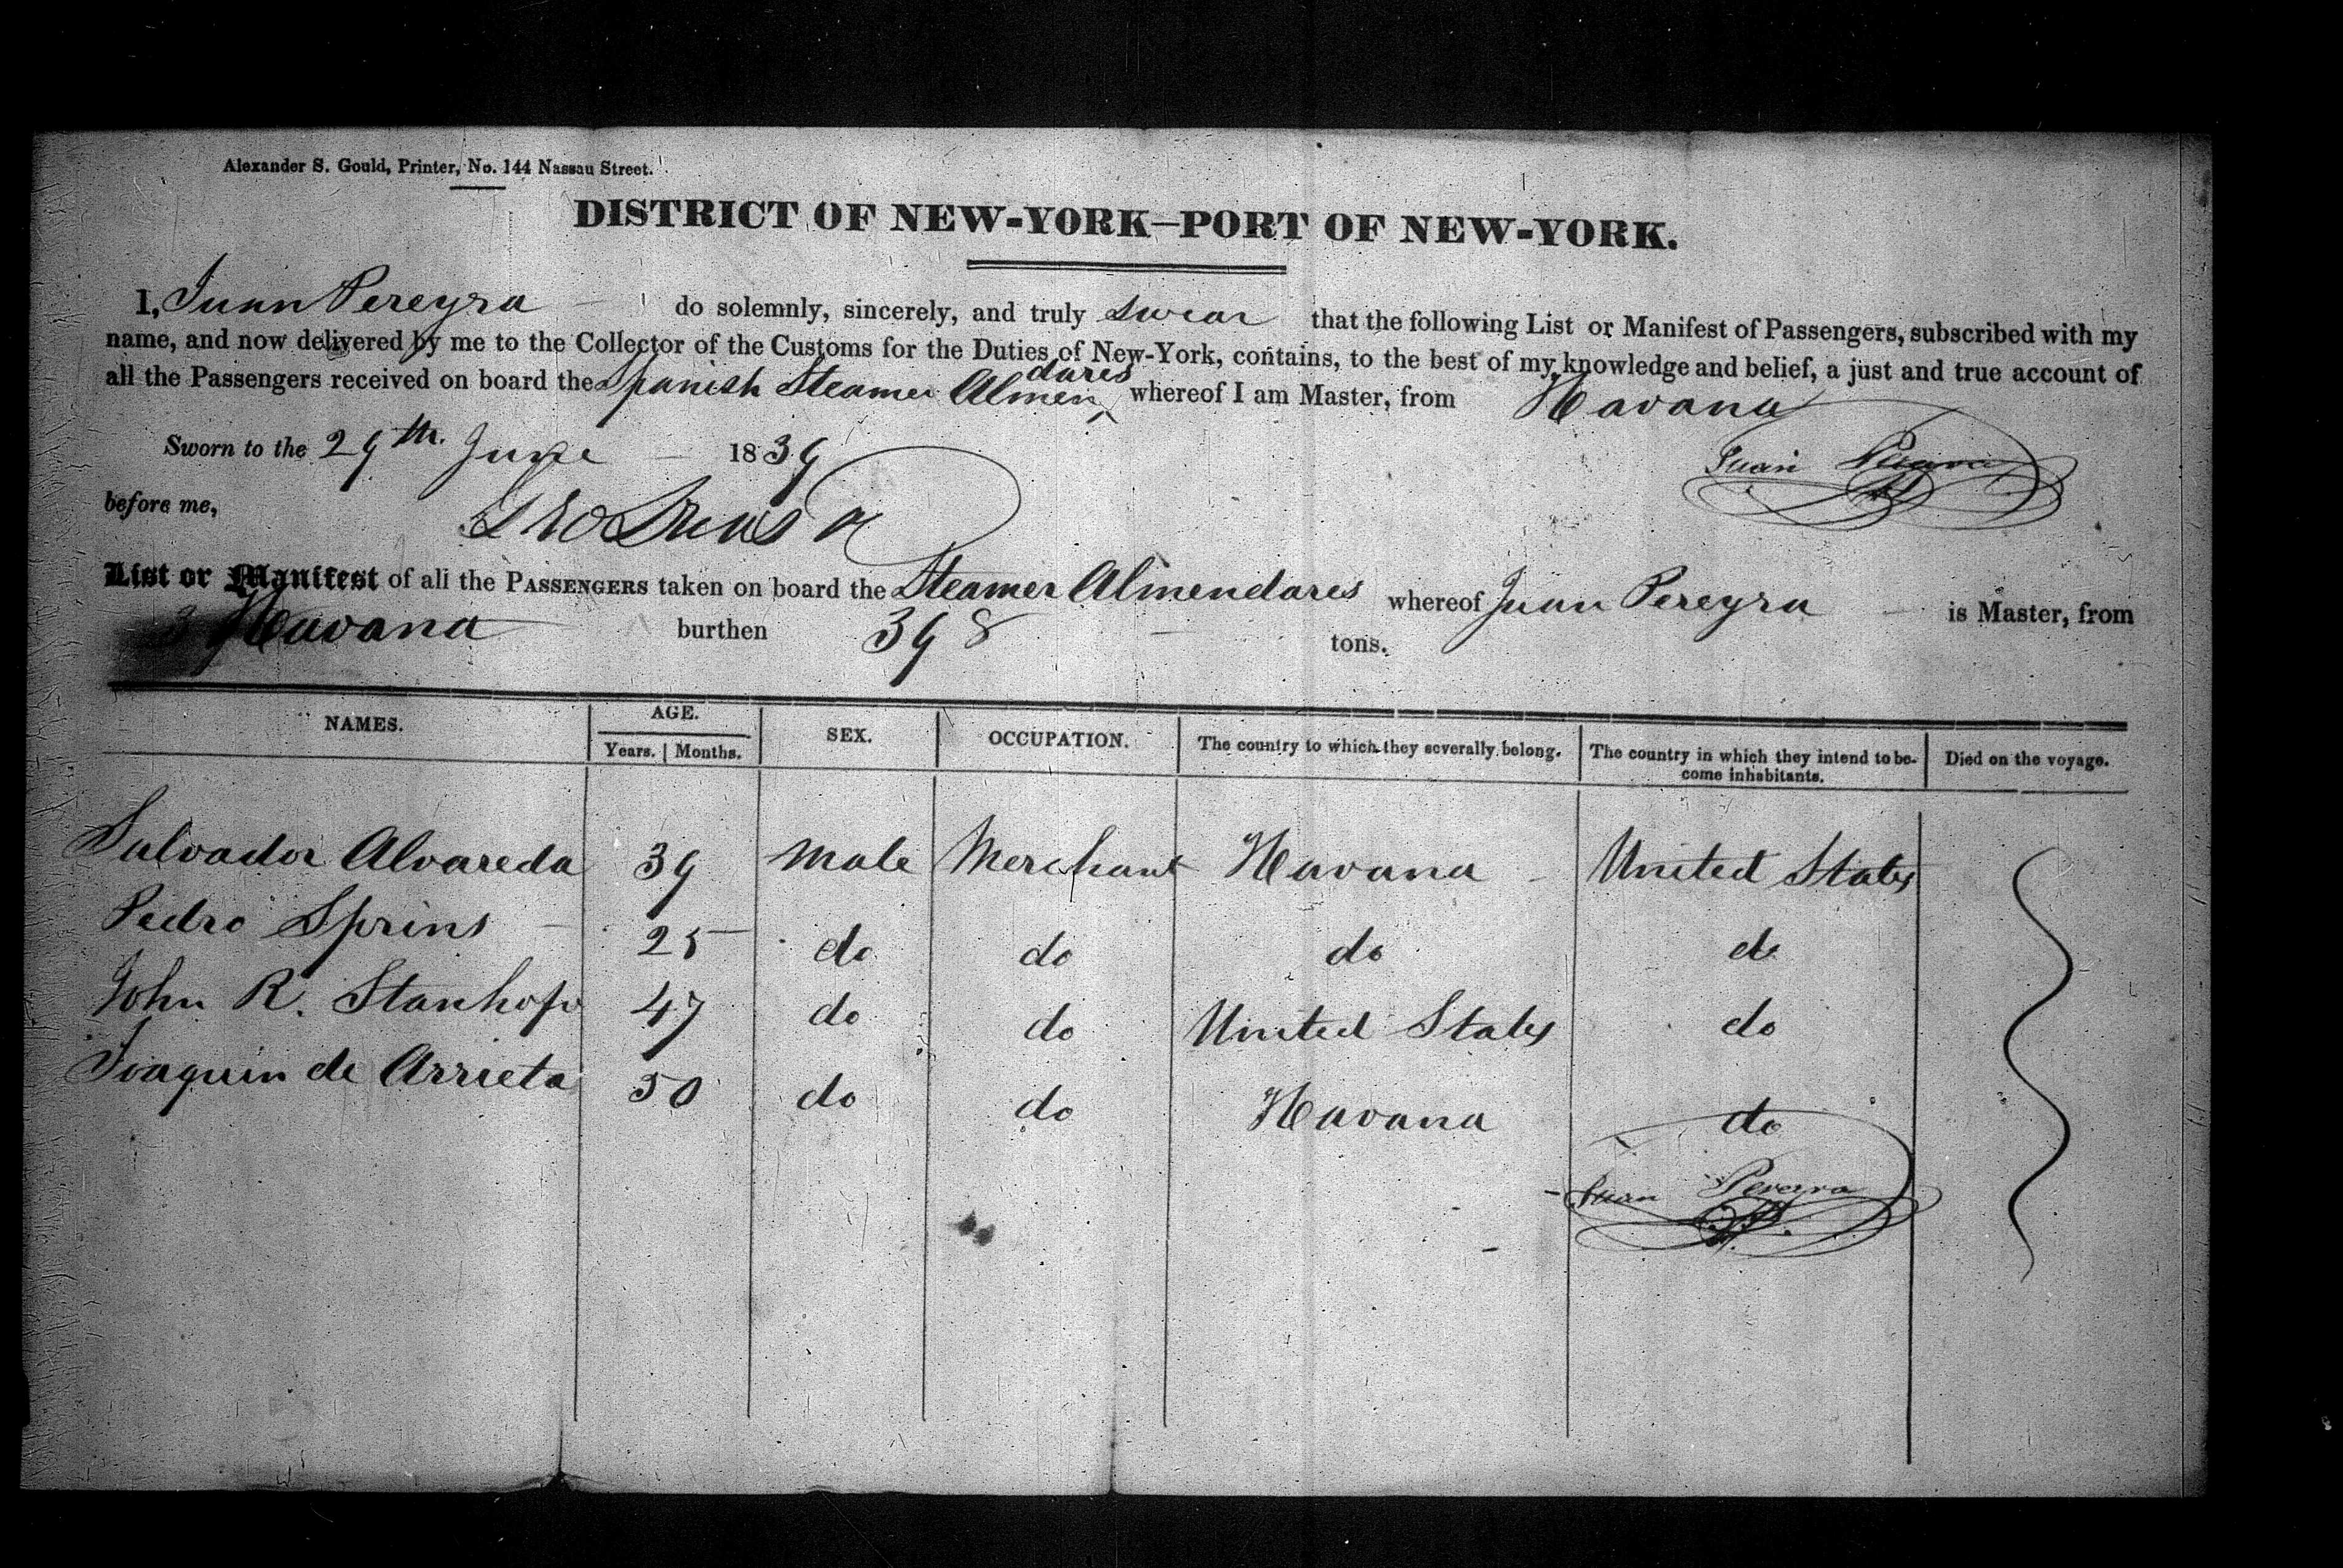 Alexander S. Gould, Printer, No. 144 Nassau Street.
DISTRICT OF NEW-YORK—PORT OF NEW-YORK.
I, Juan Pereyra do solemnly, sincerely, and truly swear that the following List or Manifest of Passengers, subscribed with my
name, and now delivered by me to the Collector of the Customs for the Duties of New-York, contains, to the best of my knowledge and belief, a just and true account of
all the Passengers received on board the Spanish Steamer Almendares whereof I am Master, from Havana
Sworn to the 29th. June 1839
Juan Pereyra
before me,
List or Manifest of all the PASSENGERS taken on board the Steamer Almendares whereof Juan Pereyra is Master, from
Havana burthen 398 tons.
NAMES. AGE. SEX. OCCUPATION. The country to which they severally belong. The country in which they intend to be- Died on the voyage.
Years. Months. come inhabitants.
Salvador Alvareda 39 Male Merchant Havana United States
Pedro Sprins 25 do do do do
John R. Stanhope 47 do do United States do
Joaquin de Arrieta 50 do do Havana do
Juan Pereyra